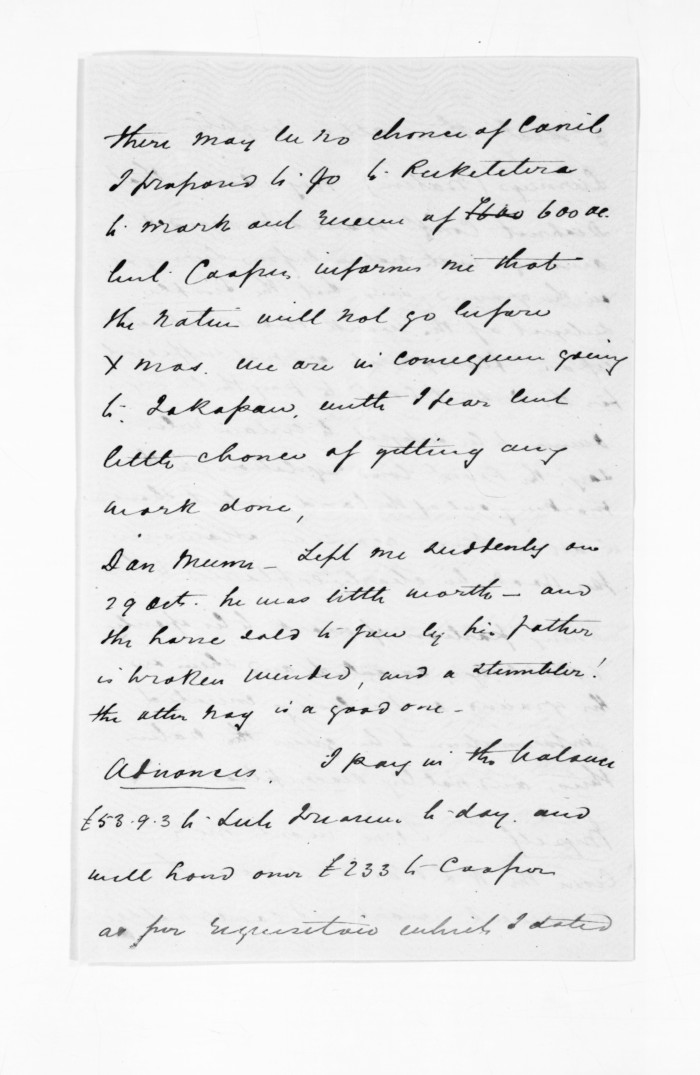 there may be no chance of Cavil
I proposed to go to Puketitira
to mark out reserve of 1600 600 ac.
but Cooper informs me that
the natives will not go before
Xmas. we are in consequence going
to Takapau, with I fear but
little chance of getting any
work done,
Dan Munn – Left me suddenly on
29 Oct. he was little worth – and
the horse sold to you by his father
is broken winded, and a stumbler!
the other nag is a good one –
Advances. I pay in the balance
£53.9.3 to Sub Treasurer to-day. and
will hand over £233 to Cooper
as per requisition which I dated